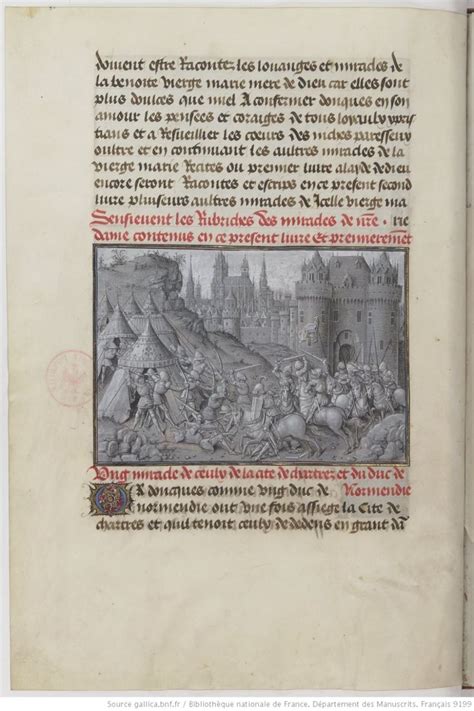 doivent estre Racontez les louanges et miracles de
la benoite vierge marie mere de dieu car elles sont
plus doulces que miel A confermer donques en son
amour les pensees et coraiges de tous loyaulx xpris
tians et a Resueillier les coeurs des index paresseux
oultre et en continuant les aultres miracles de la
vierge marie Recites ou premier liure alayde de dieu
encore seront Racontes et escrips en ce present second
liure plusieurs aultres miracles de Icelle vierge ma
Sensieuent les Rubriches des miracles de nre rie
dame contenus en ce present liure Et premierement
Ung miracle de ceulx de la cite de chartrez et du duc de
OR doncques comme ung duc de Normendie
normendie out une fois assiege la Cite de
chartres et quil tenoit ceulx de dedens en grant da
Source gallica.bnf.fr / Bibliothèque nationale de France. Département des Manuscrits. Français 9199